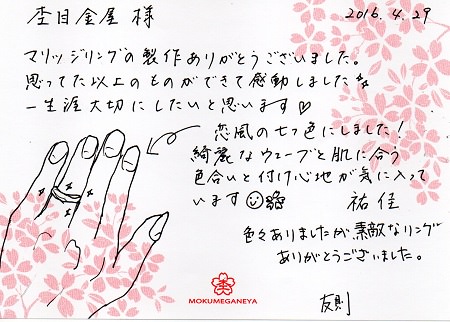 杢目金屋 様
2016.4.29
マリッジリングの製作ありがとうございました。
思ってた以上のものができて感動しました
一生涯大切にしたいと思います♡
恋風の七つ色にしました!
綺麗なウェーブと肌に合う
色合いと付け心地が気に入って
います
祐佳
色々ありましたが素敵なリング
ありがとうございました。
友則
MOKUMEGANEYA